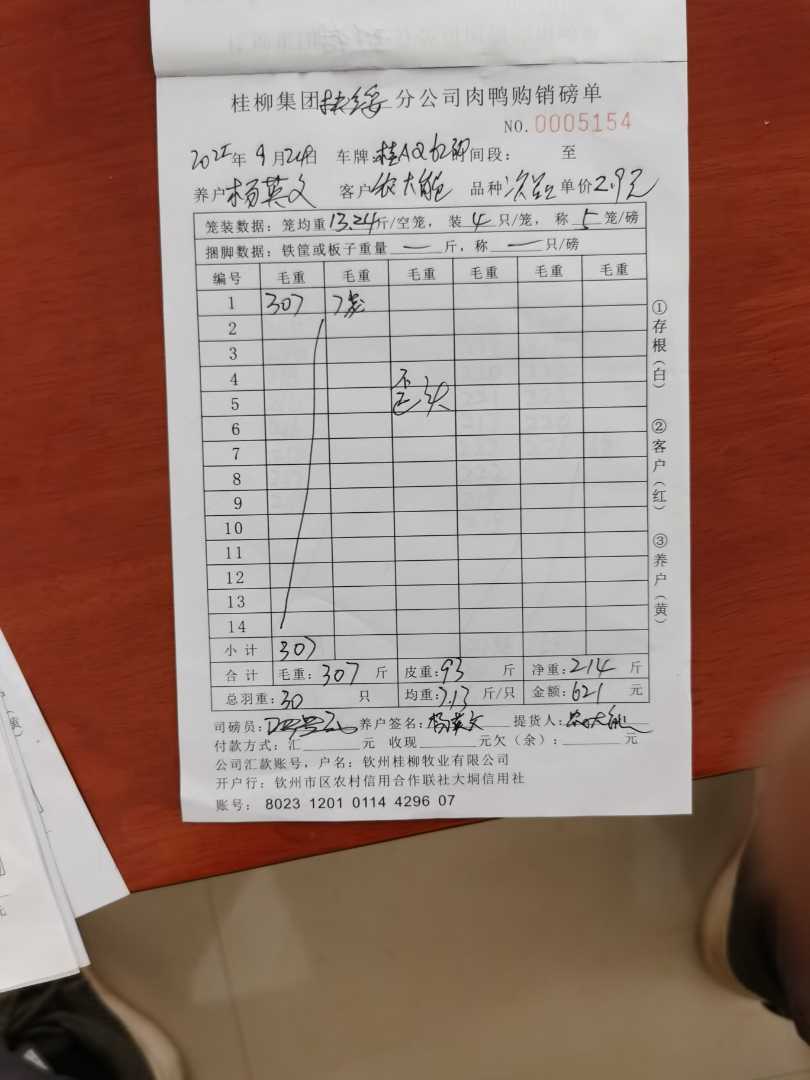 桂柳集团扶绥分公司肉鸭购销磅单
NO.0005154
年9月24日 车牌:桂A 时间段: 至
养户杨英文 客户农大能 品种次品单价2.9元
笼装数据:笼均重13.24斤/空笼,装4只/笼,称5笼/磅
捆脚数据:铁筐或板子重量一斤,称一只/磅
编号 毛重 毛重 毛重 毛重 毛重 毛重
1 307 7笼
2
3
4
5
6
7
8
9
10
11
12
13
14
小计 307
合计 毛重:307斤 皮重:93斤 净重:214斤
总羽重:30只 均重:7.13斤/只 金额:621元
司磅员: 养户签名:杨英文 提货人:农大能
付款方式:汇 元 收现 元欠(余): 元
公司汇款账号,户名:钦州桂柳牧业有限公司
开户行:钦州市区农村信用合作联社大垌信用社
账号: 8023 1201 0114 4296 07
①存根(白) ②客户(红) ③养户(黄)